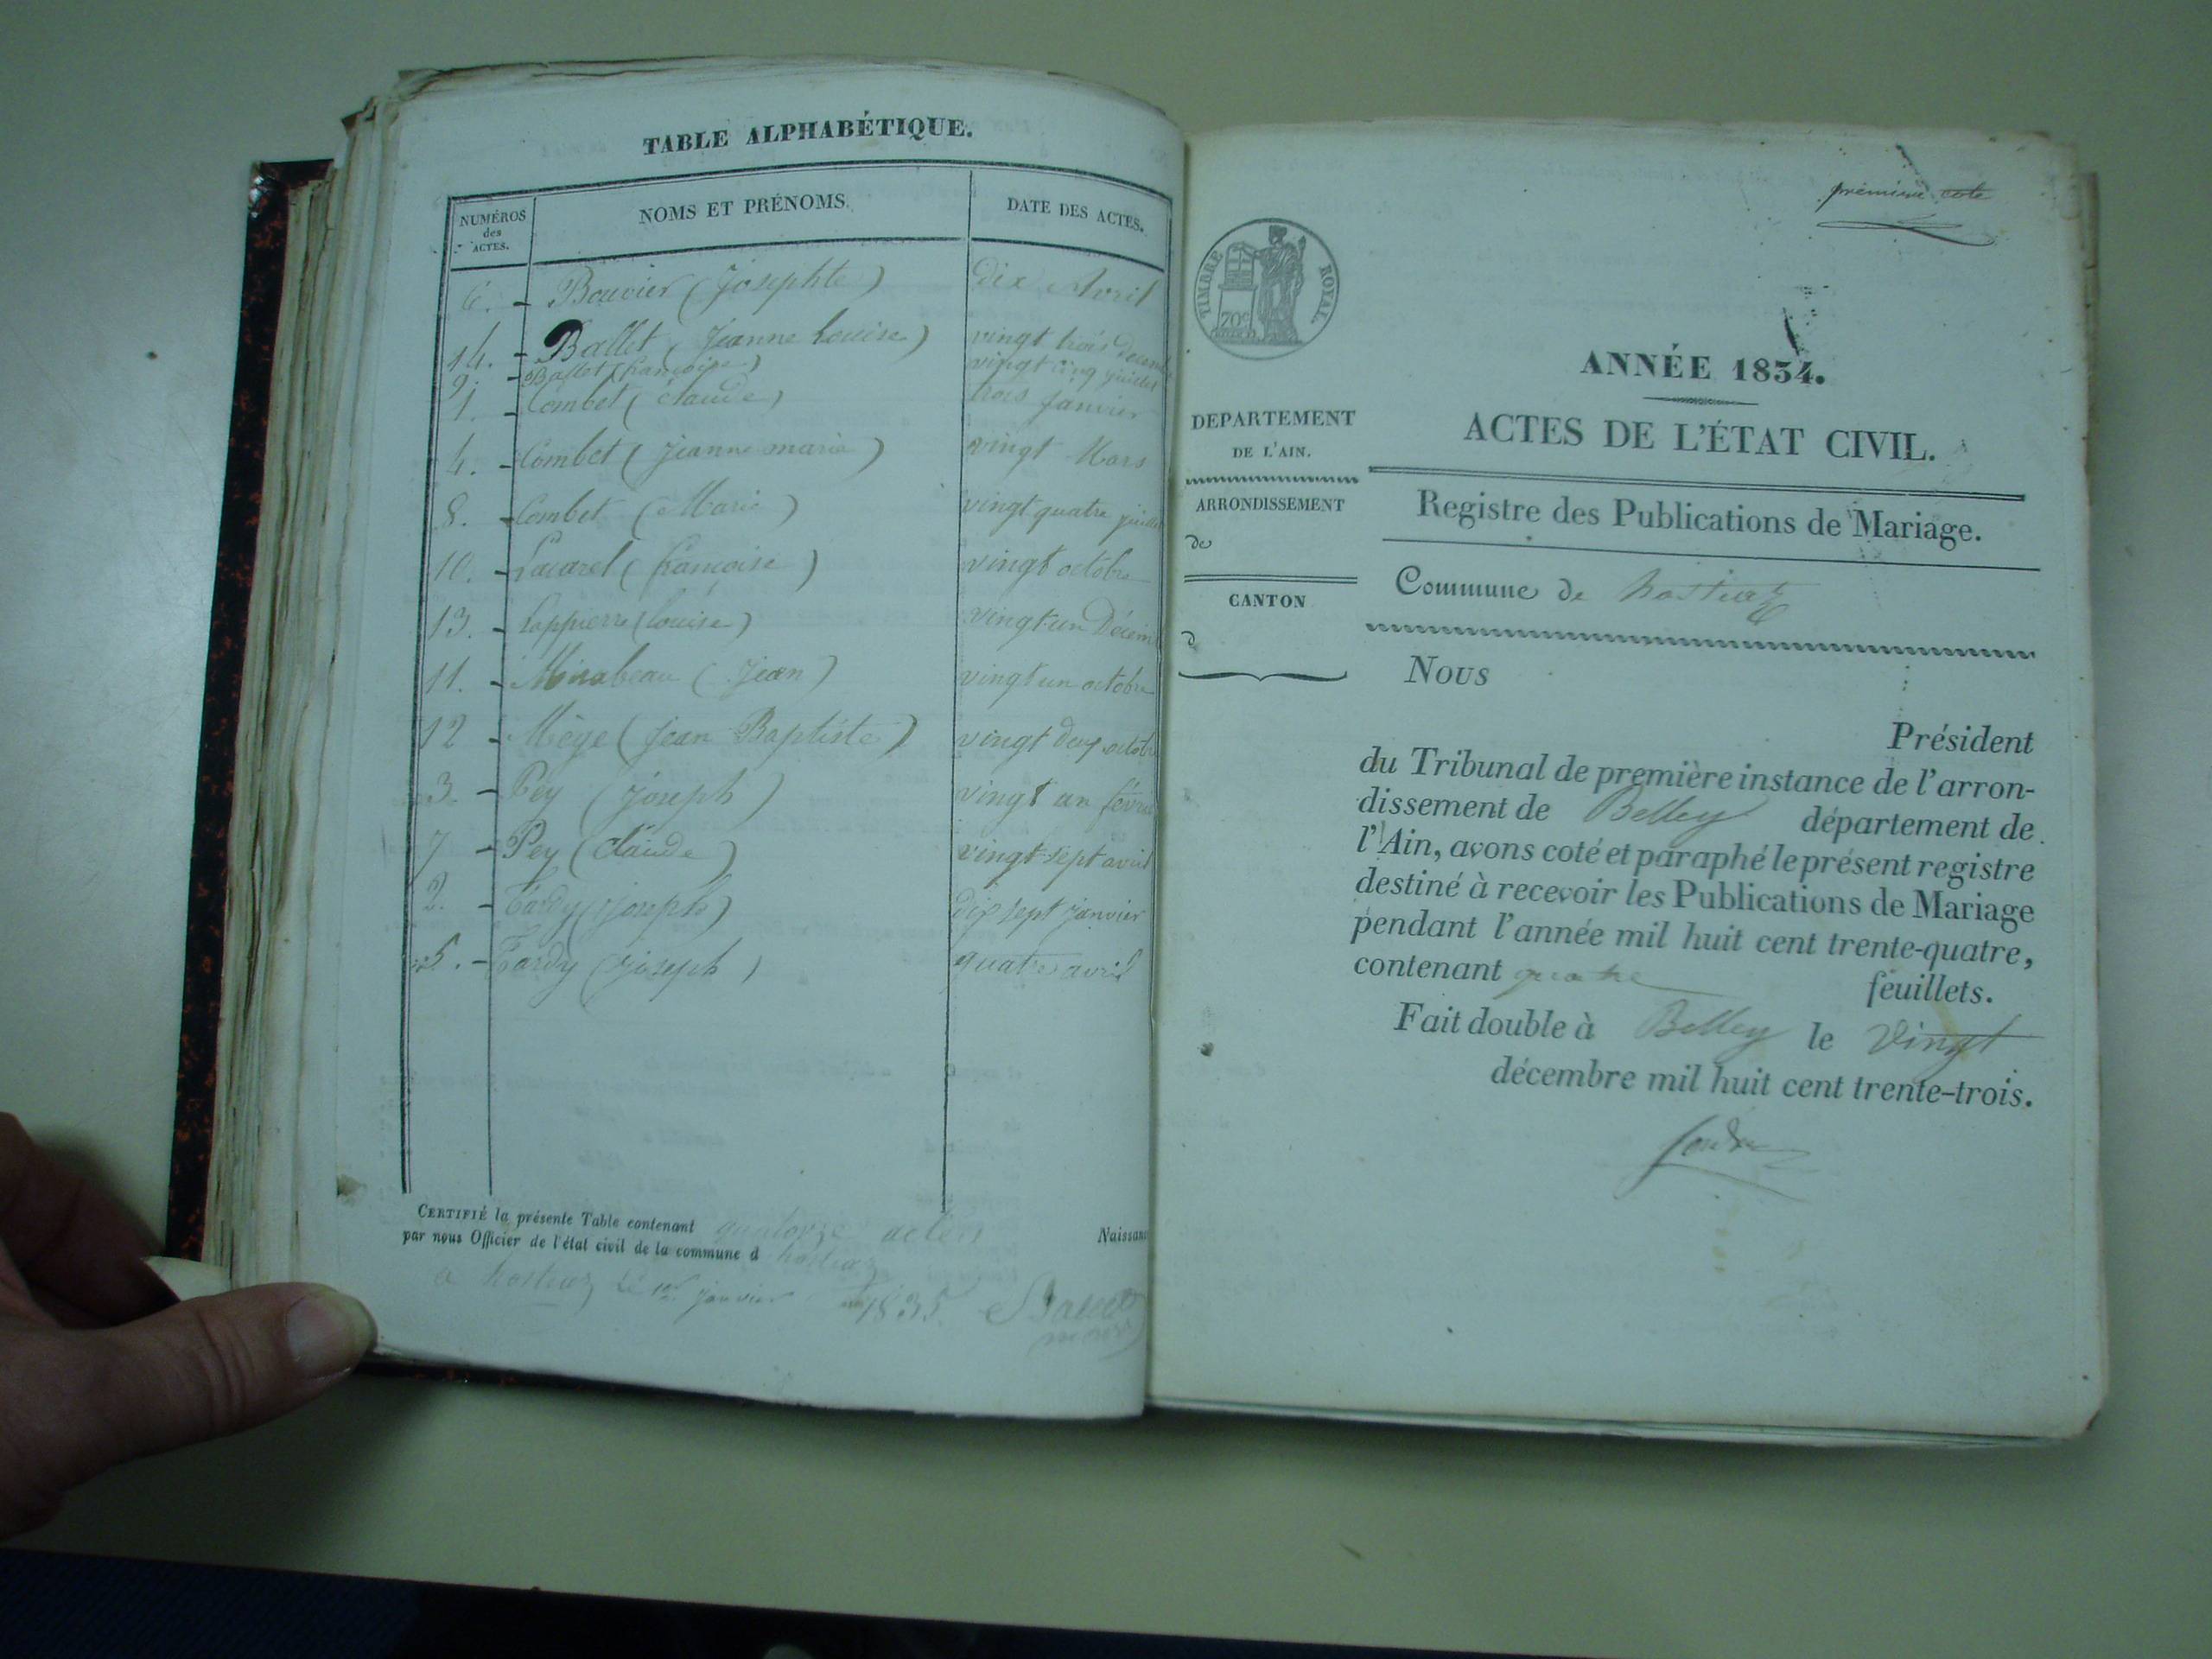 TABLE ALPHABÉTIQUE.
NUMÉROS des ACTES. NOMS ET PRÉNOMS. DATE DES ACTES.
6. - Bouvier (Josephte) dix Avril
14. - Ballet (Jeanne Louise) vingt trois décem
9. - Ballet (françoise) vingt cinq juillet
1. - Combet (claude) trois Janvier
4. - Combet (Jeanne marie) vingt Mars
8. - Combet (Marie) vingt quatre juillet
10. - (françoise) vingt octobre
13. - Lappierre (Louise) vingt-un Décem
11. - Mirabeau (Jean) vingt un octobre
12 - Mège (Jean Baptiste) vingt deux octob
3. - Pey (Joseph) vingt un févrie
7 - Pey (Claude) vingt-sept avril
2. - Tardy (joseph) dix sept janvier
5. - Tardy (joseph) quatre avril
CERTIFIÉ la présente Table contenant quatorze actes Naissanc
par nous Officier de l'état civil de la commune d hostiaz
a hostiaz le 1er janvier 1835.
première cote
TIMBRE ROYAL
70c
ANNÉE 1834.
ACTES DE L'ÉTAT CIVIL.
DEPARTEMENT
DE L'AIN.
ARRONDISSEMENT
de
CANTON
d
Registre des Publications de Mariage.
Commune de hostiaz
Nous
Président
du Tribunal de première instance de l'arron-
dissement de Belley département de
l'Ain, avons coté et paraphé le présent registre
destiné à recevoir les Publications de Mariage
pendant l'année mil huit cent trente-quatre,
contenant quatre feuillets.
Fait double à Belley le Vingt
décembre mil huit cent trente-trois.